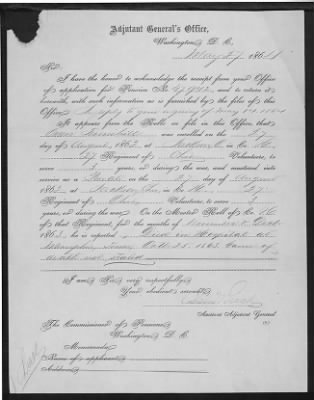 Adjutant General's Office,
Washington, D. C.,
May 27, 1864
Sir:
I have the honor to acknowledge the receipt from your Office
of application for Pension No. and to return it
herewith, with such information as is furnished by the files of this
Office.
It appears from the Rolls on file in this Office, that
was enrolled on the 27
day of August, 1862, at in Co. K.
27 Regiment of Ohio Volunteers, to
serve 3 years, or during the war, and mustered into
service as a Private on the 27 day of August
1862, at in Co. K. 27
Regiment of Ohio Volunteers, to serve 3
years, or during the war. On the Muster Roll of Co. K
of that Regiment, for the months of November & Dec
1863, he is reported Died in Hospital at
Memphis, Tenn, Oct. 25. 1863. Cause of
death not stated
I am, Sir, very respectfully,
Your obedient servant,
Assistant Adjutant General
The Commissioner of Pensions,
Washington, D. C.
Memoranda:
Name of applicant,
Address,